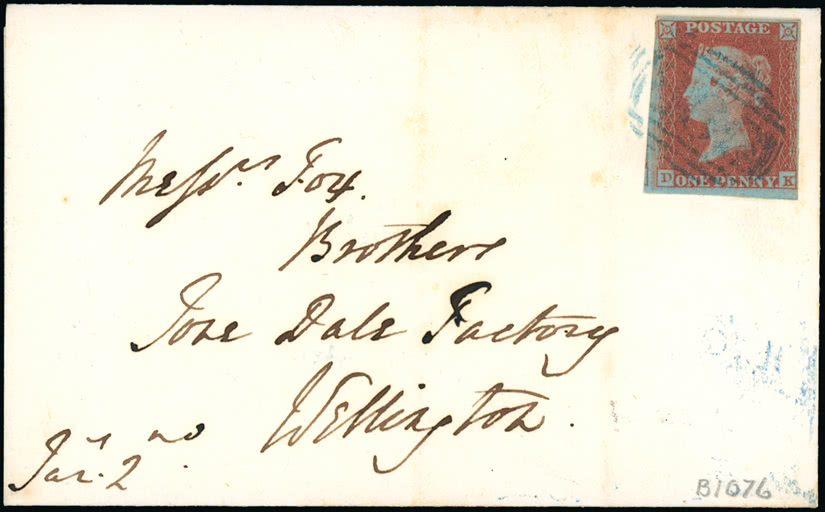 POSTAGE
D ONE PENNY K
Messrs. Fox
Brothers
Tone Dale Factory
Wellington.
Jany. 2nd
B1076